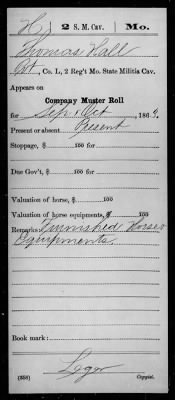 H | 2 S. M. Cav. | Mo.
Thomas Hall
Pvt, Co. L, 2 Reg't Mo. State Militia Cav.
Appears on
Company Muster Roll
for Sep & Oct, 186
Present or absent Present
Stoppage, $ 100 for
Due Gov't, $ 100 for
Valuation of horse, $ 100
Valuation of horse equipments, $ 100
Remarks: Furnished Horse &
Equipments.
Book mark:
(358) Copyist.